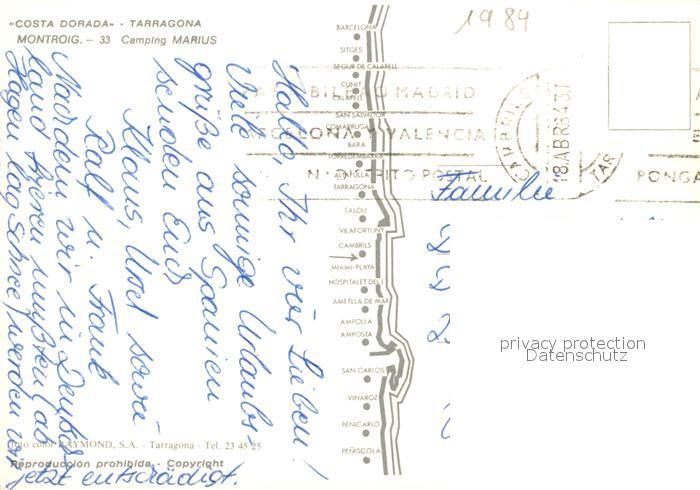 "COSTA DORADA" - TARRAGONA
MONTROIG. - 33 Camping MARIUS
1984
Hallo, Ihr vier Lieben!
Viele sonnige Urlaubs-
grüße aus Spanien
senden Euch
Klaus, Ursel sowie
Ralf u. Frank
Nachdem wir in Deutsch-
land frieren mußten (ab
Hagen lag Schnee) werden wir
jetzt entschädigt.
Familie
BARCELONA
SITGES
SEGUR DE CALAFELL
CUNIT
CALAFELL
SAN SALVADOR
COMARRUGA
BARA
TORREDEMBARRA
ALTAFULLA
TARRAGONA
SALOU
VILAFORTUNY
CAMBRILS
MIAMI-PLAYA
HOSPITALET DEL I.
AMETLLA DE MAR
AMPOLLA
AMPOSTA
SAN CARLOS
VINAROZ
BENICARLO
PEÑISCOLA
BILBAO MADRID
BARCELONA VALENCIA
DISTRITO POSTAL
PONGA
CAMBRILS
TAR
privacy protection
Datenschutz
Foto color RAYMOND, S.A. - Tarragona - Tel. 23 45 25
Reproducción prohibida. - Copyright